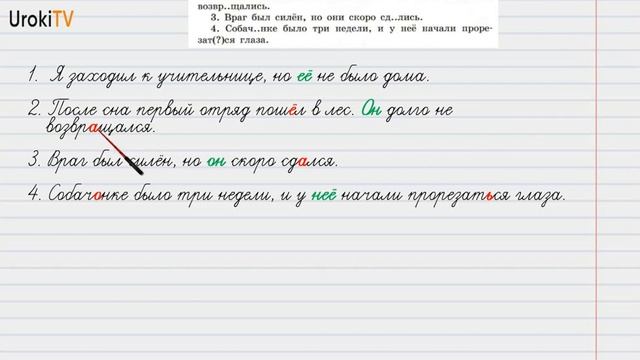 UrokiTV
возвр..щались.
3. Враг был силён, но они скоро сд..лись.
4. Собач..нке было три недели, и у неё начали проре-
зат(?)ся глаза.
1. Я заходил к учительнице, но её не было дома.
2. После сна первый отряд пошёл в лес. Он долго не
возвращался.
3. Враг был силён, но он скоро сдался.
4. Собачонке было три недели, и у неё начали прорезаться глаза.